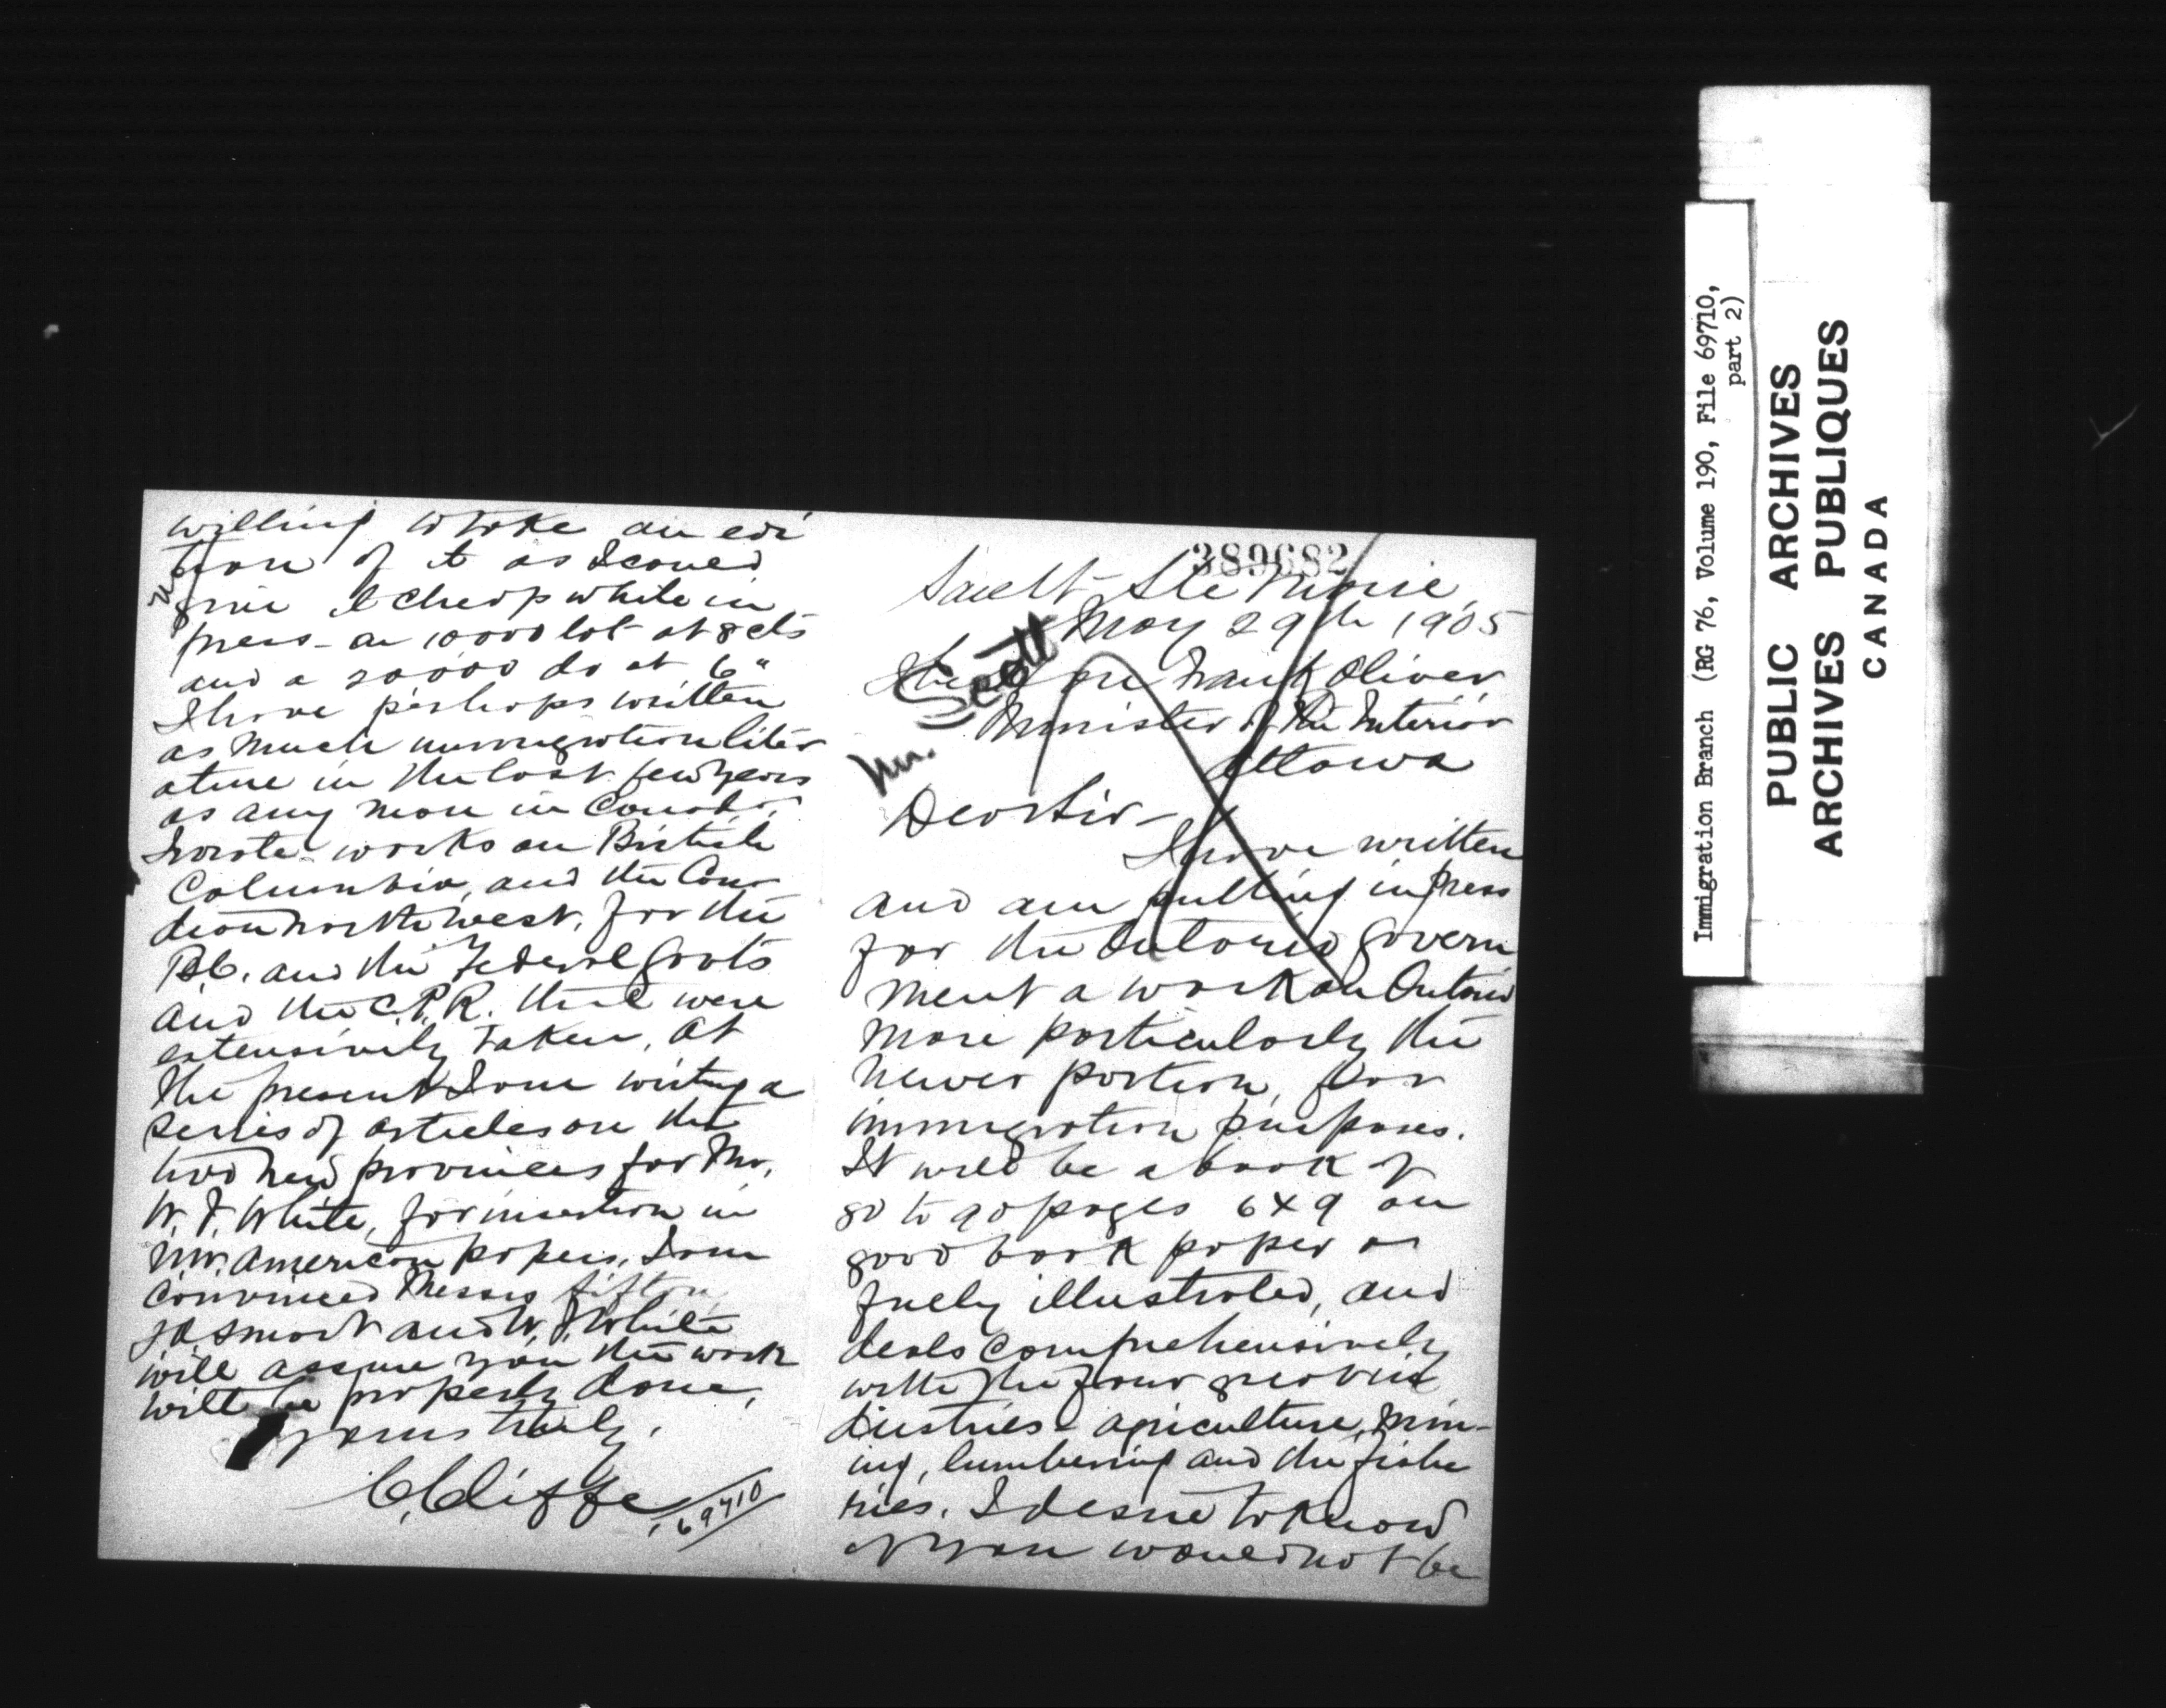 389682
Sault Ste Marie,
May 29th 1905
Mr. Scott
The Hon Frank Oliver
Minister of the Interior
Ottawa
Dear Sir –
I have written
and am putting in press
for the Ontario Govern
ment a work on Ontario
more particularly the
newer portion, for
immigration purposes.
It will be a book of
80 to 90 pages 6 x 9 on
good book paper
finely illustrated, and
deals comprehensively
with the four great in
dustries – agriculture, min-
ing, lumbering and the fishe
ries. I desire to know
if you would not be
willing to take an edi
tion of it as I could
give it cheap while in
press – a 10000 lot at 8 cts
and a 20000 do at 6 "
I have perhaps written
as much immigration liter
ature in the last few years
as any man in Canada.
I wrote works on British
Columbia, and the Cana
dian north west, for the
B.C. and the Federal Govts
and the C.P.R. that were
extensively taken. At
the present I am writing a
series of articles on the
two new provinces for Mr.
W. J. White, for insertion in
N.W. American papers. I am
convinced Messrs Sifton,
JA Smart and W. J. White
will assure you the work
will be properly done,
yours truly,
C. Cliffe
69710
Immigration Branch (RG 76, Volume 190, File 69710,
part 2)
PUBLIC ARCHIVES
ARCHIVES PUBLIQUES
CANADA